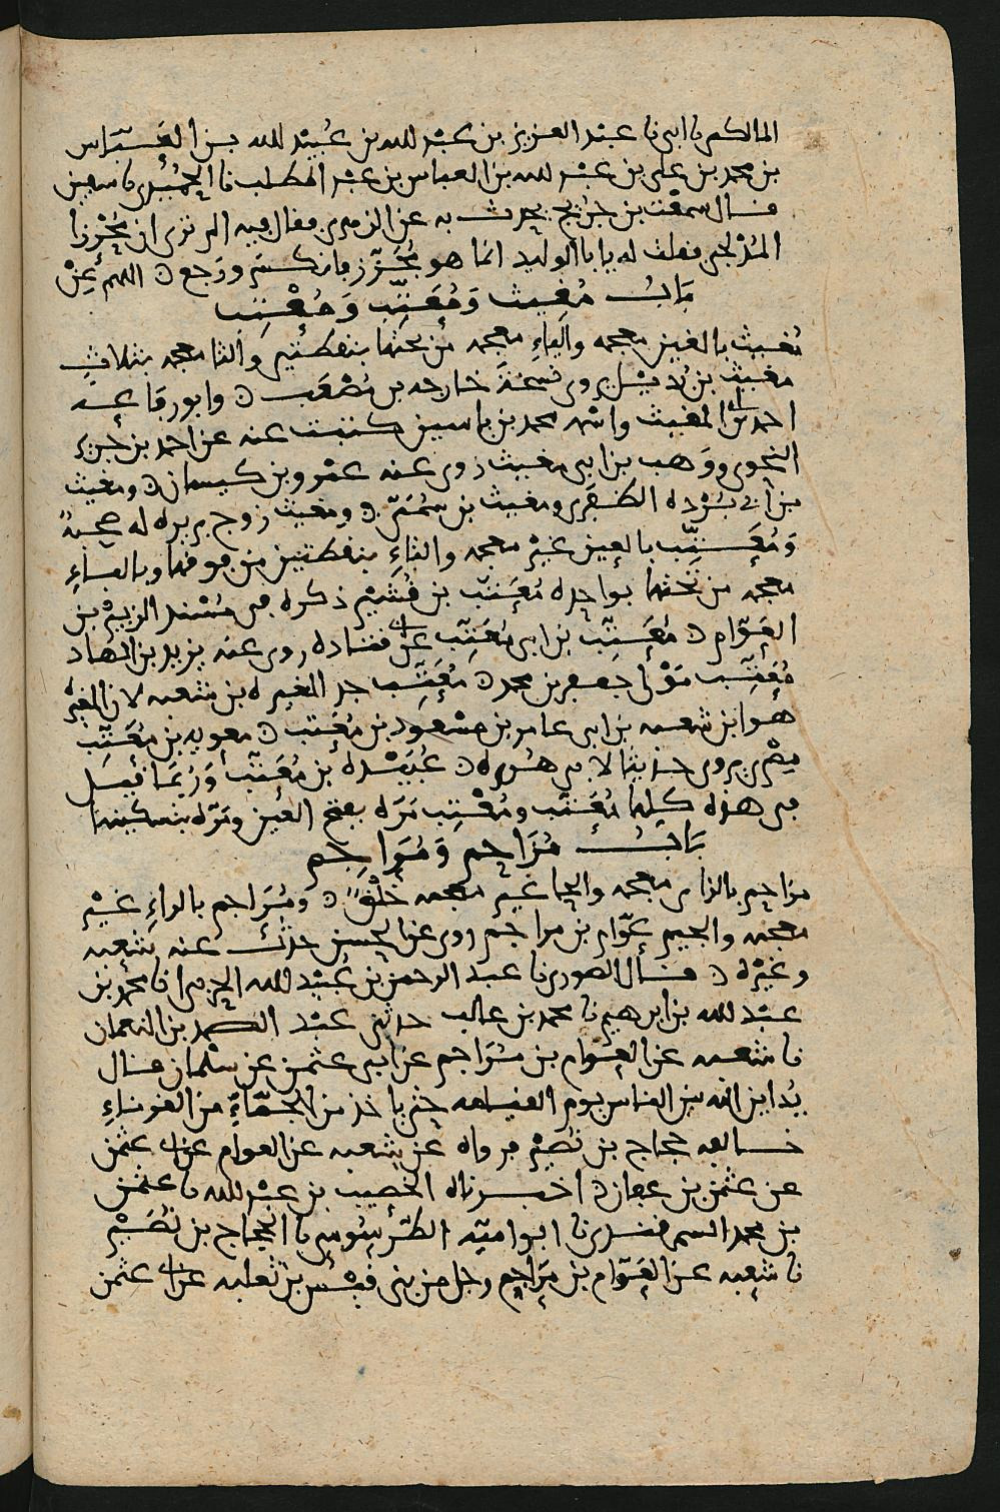 المالكى نا ابى نا عبد العزيز بن عبد الله بن عبيد الله بن العباس
بن محمد بن على بن عبد الله بن العباس بن عبد المطلب نا الحميدى نا سفين
قال سمعت بن جريج يحدث به عن الزهرى فقال فيه الم ترى ان محرزا
المدلجى فقلت له يا با الوليد انما هو مجزز فانكسر ورجع
باب مغيث ومعتب ومعتب
مغيث بالغين معجمه والياء معجمه من تحتها بنقطتين والثا معجمه بثلاث
مغيث بن بديل يروى نسخة خارجه بن مصعب وابو رجا عنه
احمد بن المغيث واسمه محمد بن ياسين كتبت عنه عن احمد بن
النحوى ووهب بن ابى مغيث روى عنه عمرو بن كيسان ومغيث
بن ابى برده الظفرى ومغيث بن سمى ومغيث زوج بريره له صحبة
ومعتب بالعين غير معجمه والتاء بنقطتين من فوقها وبالباء
معجمه من تحتها بواحده معتب بن قشير ذكره فى مسند الزبير بن
العوام معتب بن ابى معتب عن قتاده روى عنه يزيد بن الهاد
معتب مولى جعفر بن محمد معتب جد المغيره بن شعبه لان المغيره
هو ابن شعبه بن ابى عامر بن مسعود بن معتب معويه بن معتب
مصرى يروى حديثا لابى هريره عبيده بن معتب وربما قيل
فى هذه كلها معتب ومعتب مره بفتح العين ومره بتسكينها
باب مزاحم ومراجم
مزاحم بالزاى معجمه والحا غير معجمه خلق ومراجم بالراء غير
معجمه والجيم عوام بن مراجم روى عن الحسن حدث عنه شعبه
وغيره قال الصورى نا عبد الرحمن بن عبيد الله الحرمى نا محمد بن
عبد الله بن ابرهيم نا محمد بن غالب حدثنى عبد الصمد بن النعمان
نا شعبه عن العوام بن مراجم عن ابى عثمن عن سلمان قال
يداين الله بين الناس يوم القيامه حتى ياخذ من الجماء من القرناء
خالفه حجاج بن نصير فرواه عن شعبه عن العوام عن ابى عثمن
عن عثمن بن عفان اخبرناه الخصيب بن عبد الله نا عثمن
بن محمد السمرقندى نا ابو اميه الطرسوسى نا الحجاج بن نصير
نا شعبه عن العوام بن مراجم رجل من بنى قيس بن ثعلبه عن ابى عثمن